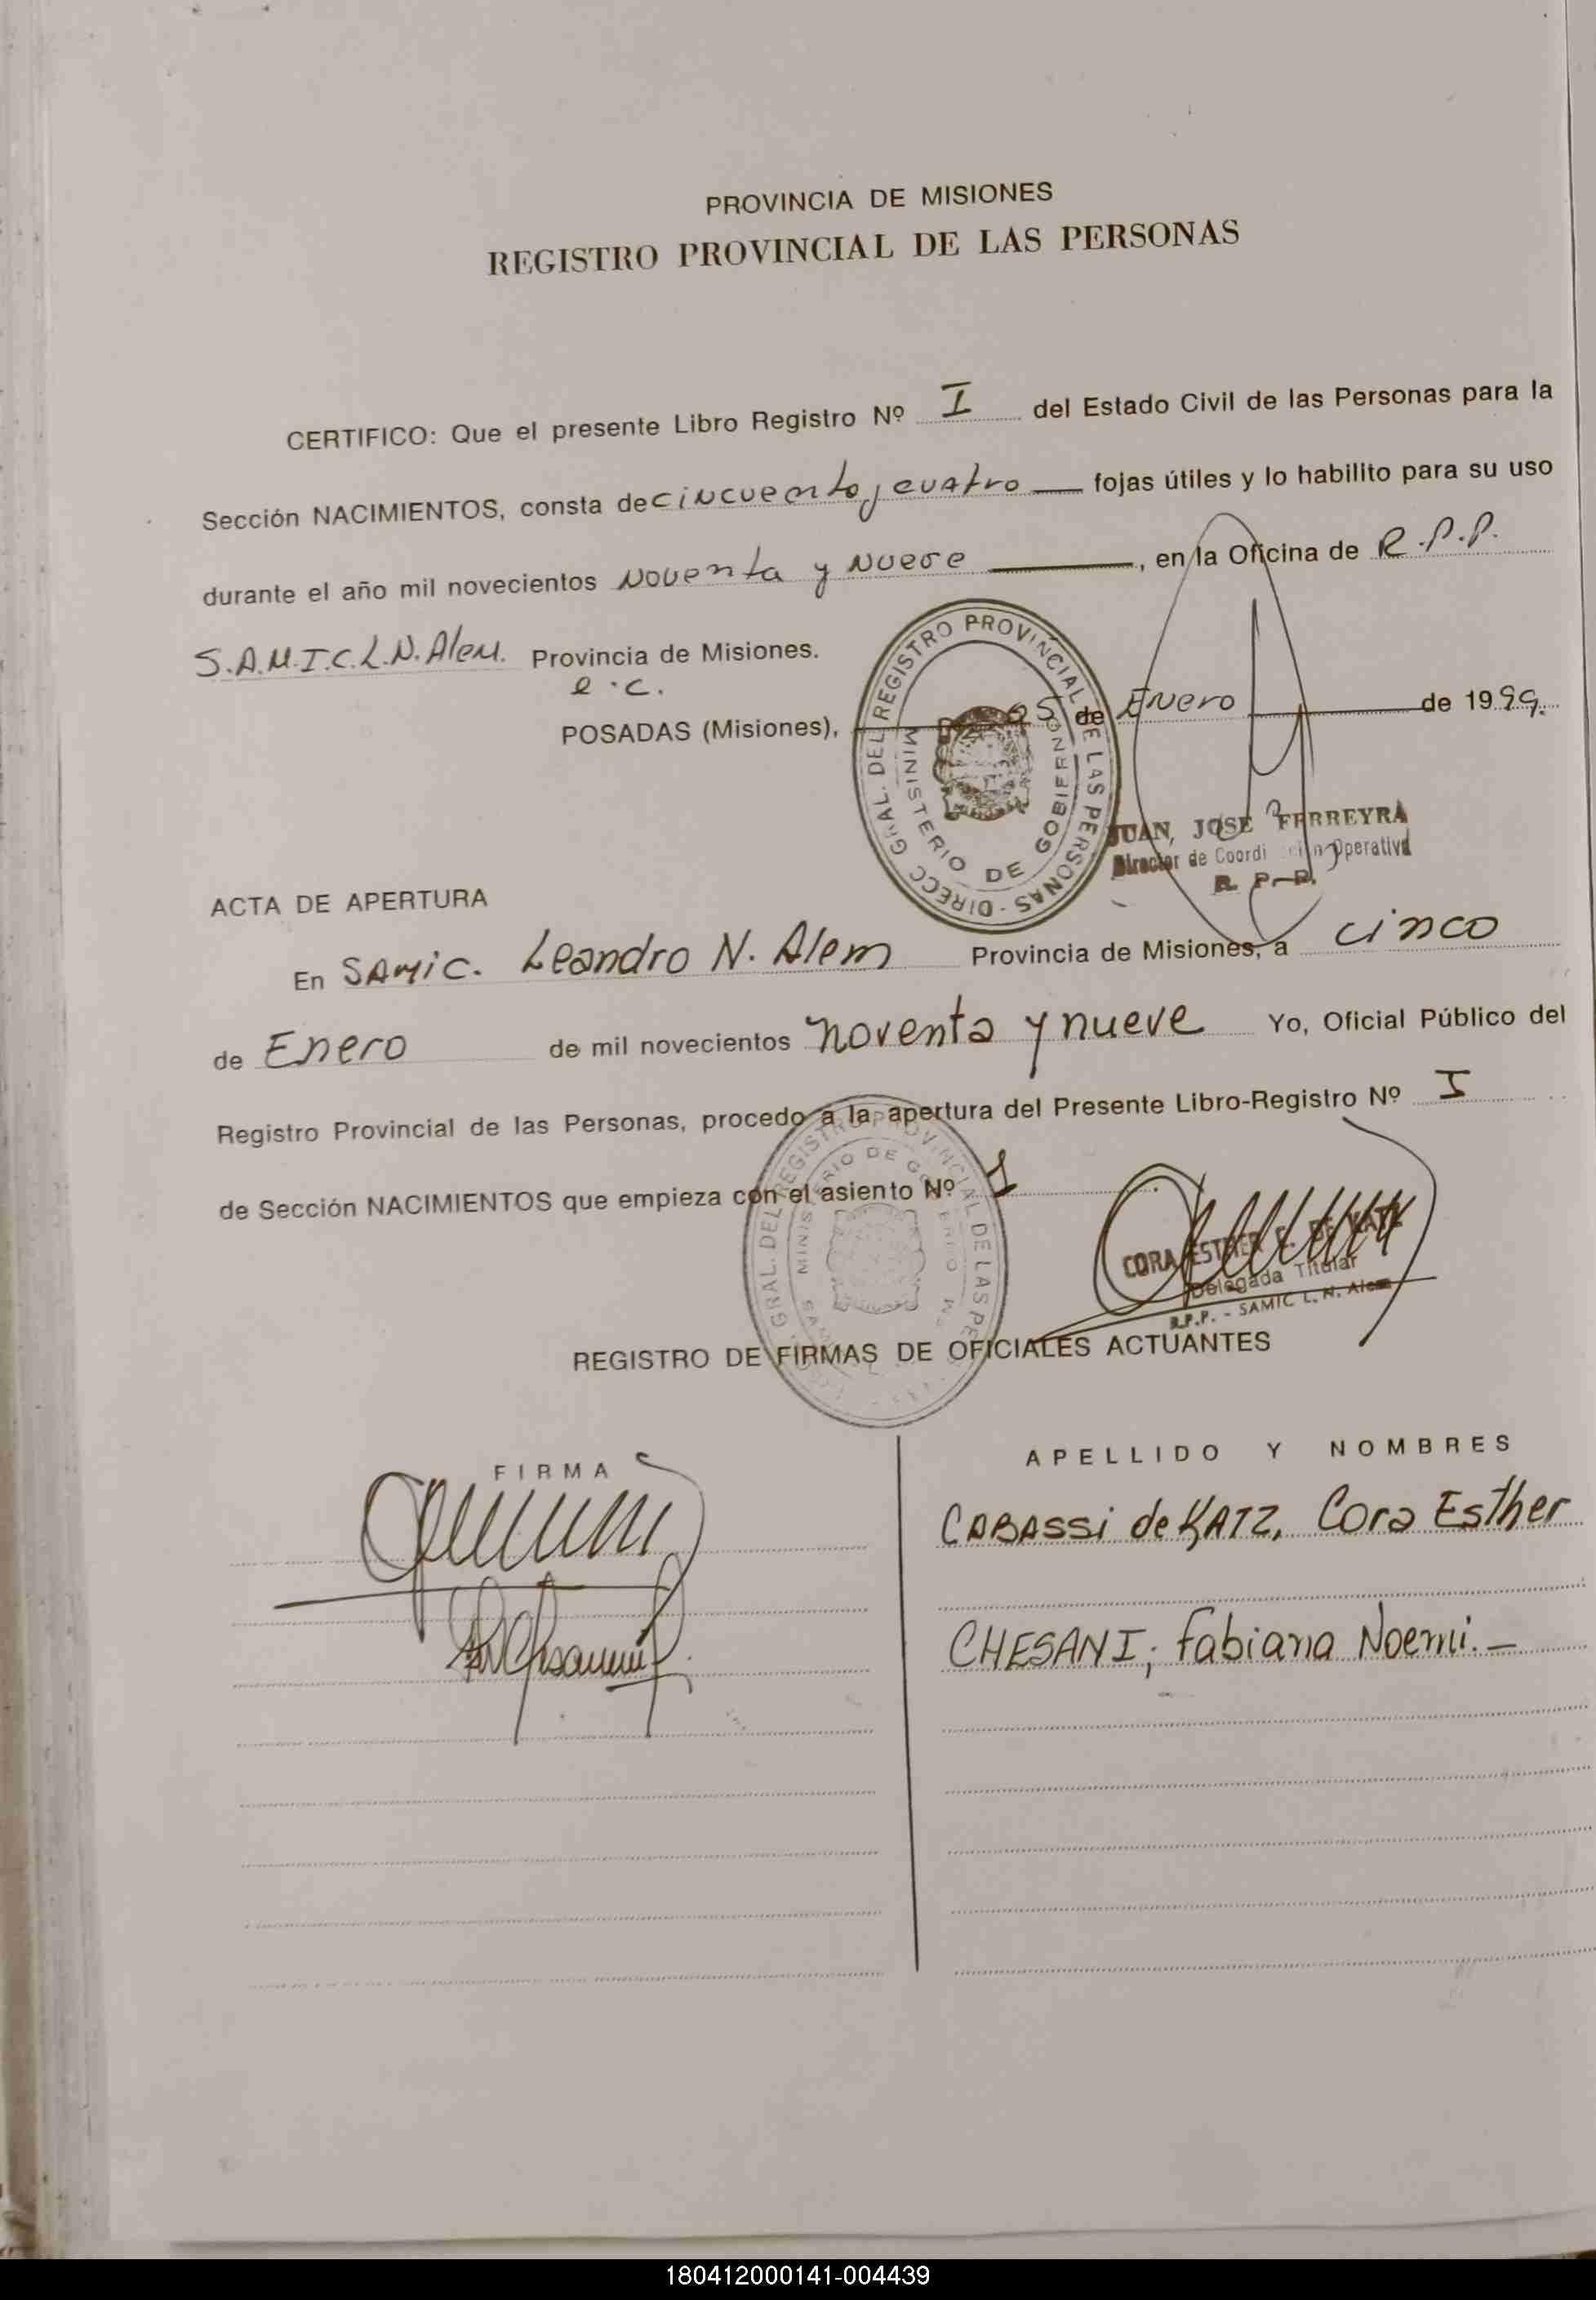 PROVINCIA DE MISIONES
REGISTRO PROVINCIAL DE LAS PERSONAS
CERTIFICO: Que el presente Libro Registro Nº I del Estado Civil de las Personas para la
Sección NACIMIENTOS, consta de cincuenta y cuatro fojas útiles y lo habilito para su uso
durante el año mil novecientos noventa y nueve, en la Oficina de R.P.P.
S.A.M.I.C.L.N.Alem. Provincia de Misiones.
e.c.
POSADAS (Misiones), 05 de Enero de 1999.
DIRECC GRAL. DEL REGISTRO PROVINCIAL DE LAS PERSONAS -
MINISTERIO DE GOBIERNO
JUAN JOSE FERREYRA
Director de Coordi Operativa
R. P. P.
ACTA DE APERTURA
En SAMIC. Leandro N. Alem Provincia de Misiones, a cinco
de Enero de mil novecientos noventa y nueve Yo, Oficial Público del
Registro Provincial de las Personas, procedo a la apertura del Presente Libro-Registro Nº I
de Sección NACIMIENTOS que empieza con el asiento Nº 1
GRAL. DEL REGISTRO PROVINCIAL DE LAS PE
MINISTERIO DE GOBIERNO
CORA ESTHER C. DE KATZ
Delegada Titular
R.P.P. - SAMIC L. N. Alem
REGISTRO DE FIRMAS DE OFICIALES ACTUANTES
FIRMA
APELLIDO Y NOMBRES
CABASSI de KATZ, Cora Esther
CHESANI, Fabiana Noemi.-
180412000141-004439